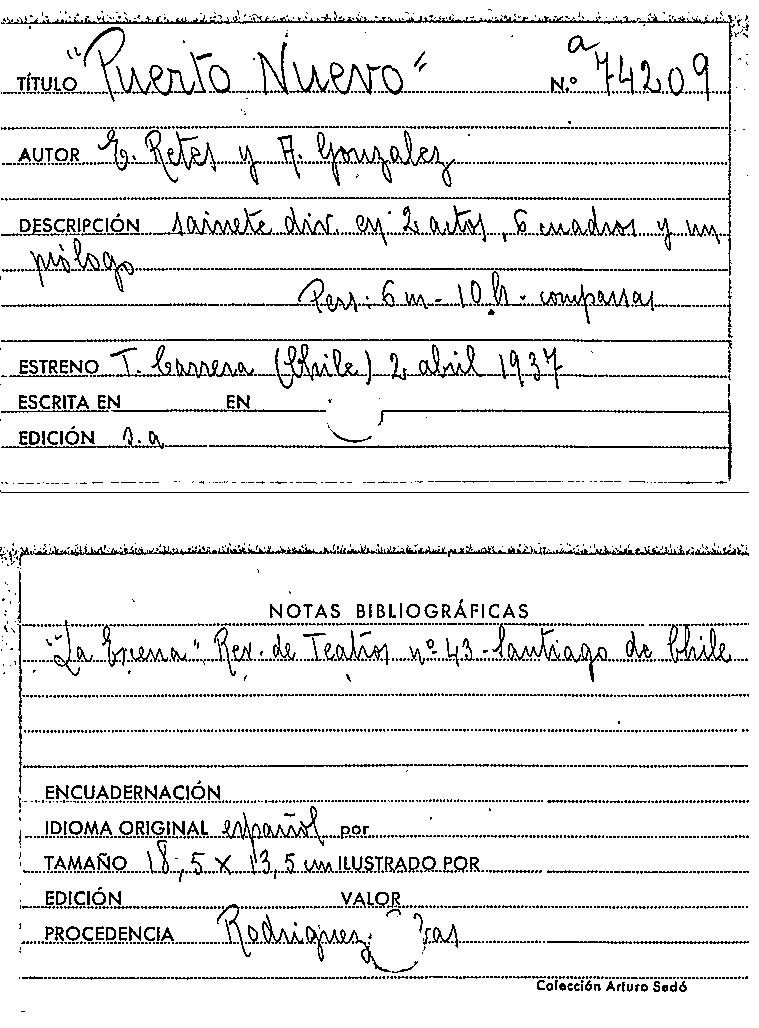 TÍTULO "Puerto Nuevo" N.º a 74209
AUTOR E. Retes y A. Gonzalez
DESCRIPCIÓN sainete div. en 2 actos, 6 cuadros y un
prólogo
Pers: 6 m - 10 h - comparsas
ESTRENO T. Carrera (Chile) 2 abril 1937
ESCRITA EN EN
EDICIÓN s.a
NOTAS BIBLIOGRÁFICAS
"La Escena" Rev. de Teatros nº 43 - Santiago de Chile
ENCUADERNACIÓN
IDIOMA ORIGINAL español por
TAMAÑO 18,5 x 13,5 cm ILUSTRADO POR
EDICIÓN VALOR
PROCEDENCIA Rodriguez
Colección Arturo Sedó